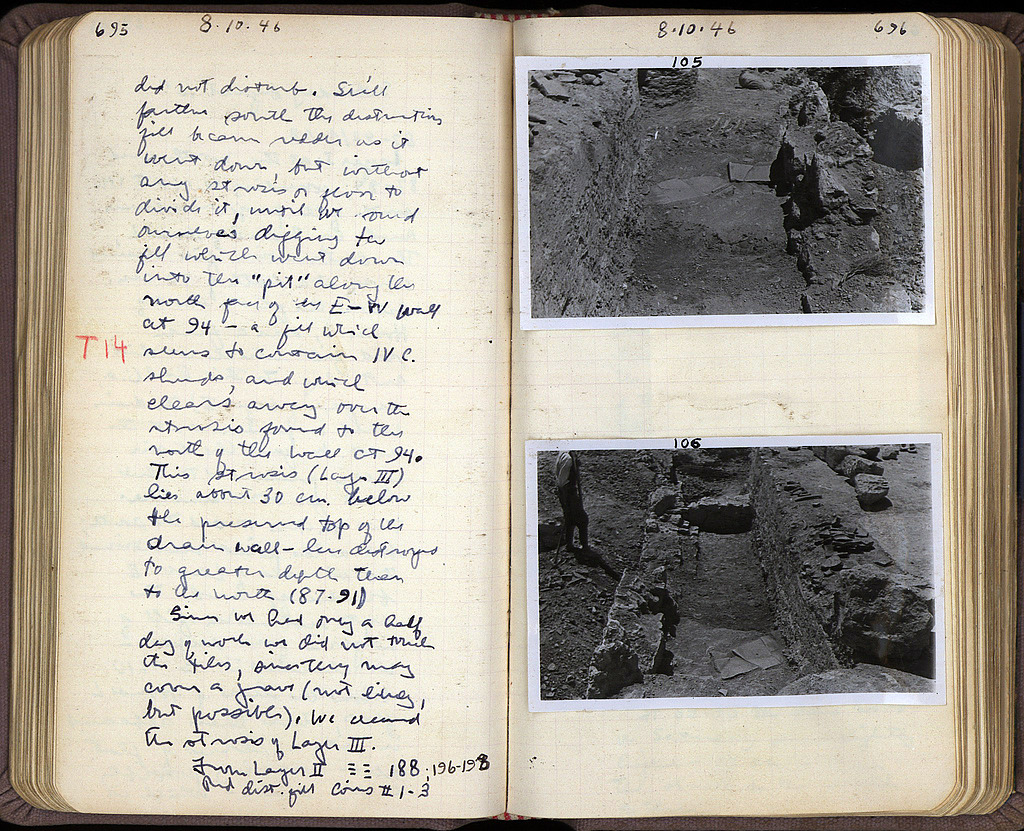 695
8.10.46
did not disturb. Still
farther south the destruction
fill became redder as it
went down, but without
any strosis or floor to
divide it, until we found
ourselves digging the
fill which went down
into the "pit" along the
north face of the E-W wall
at 94 - a fill which
T14
seems to contain IV C.
sherds, and which
clears away over the
strosis found to the
north of the wall at 94.
This strosis (Layer III)
lies about 30 cm. below
the preserved top of the
drain wall - here destroyed
to greater depth than
to the north (87-91)
Since we had only a half
day of work we did not touch
the tiles, since they may
cover a grave (not likely,
but possible). We cleaned
the strosis of Layer III.
From Layer II 188, 196-198
Red dist. fill Coins # 1-3
8.10.46
696
105
106